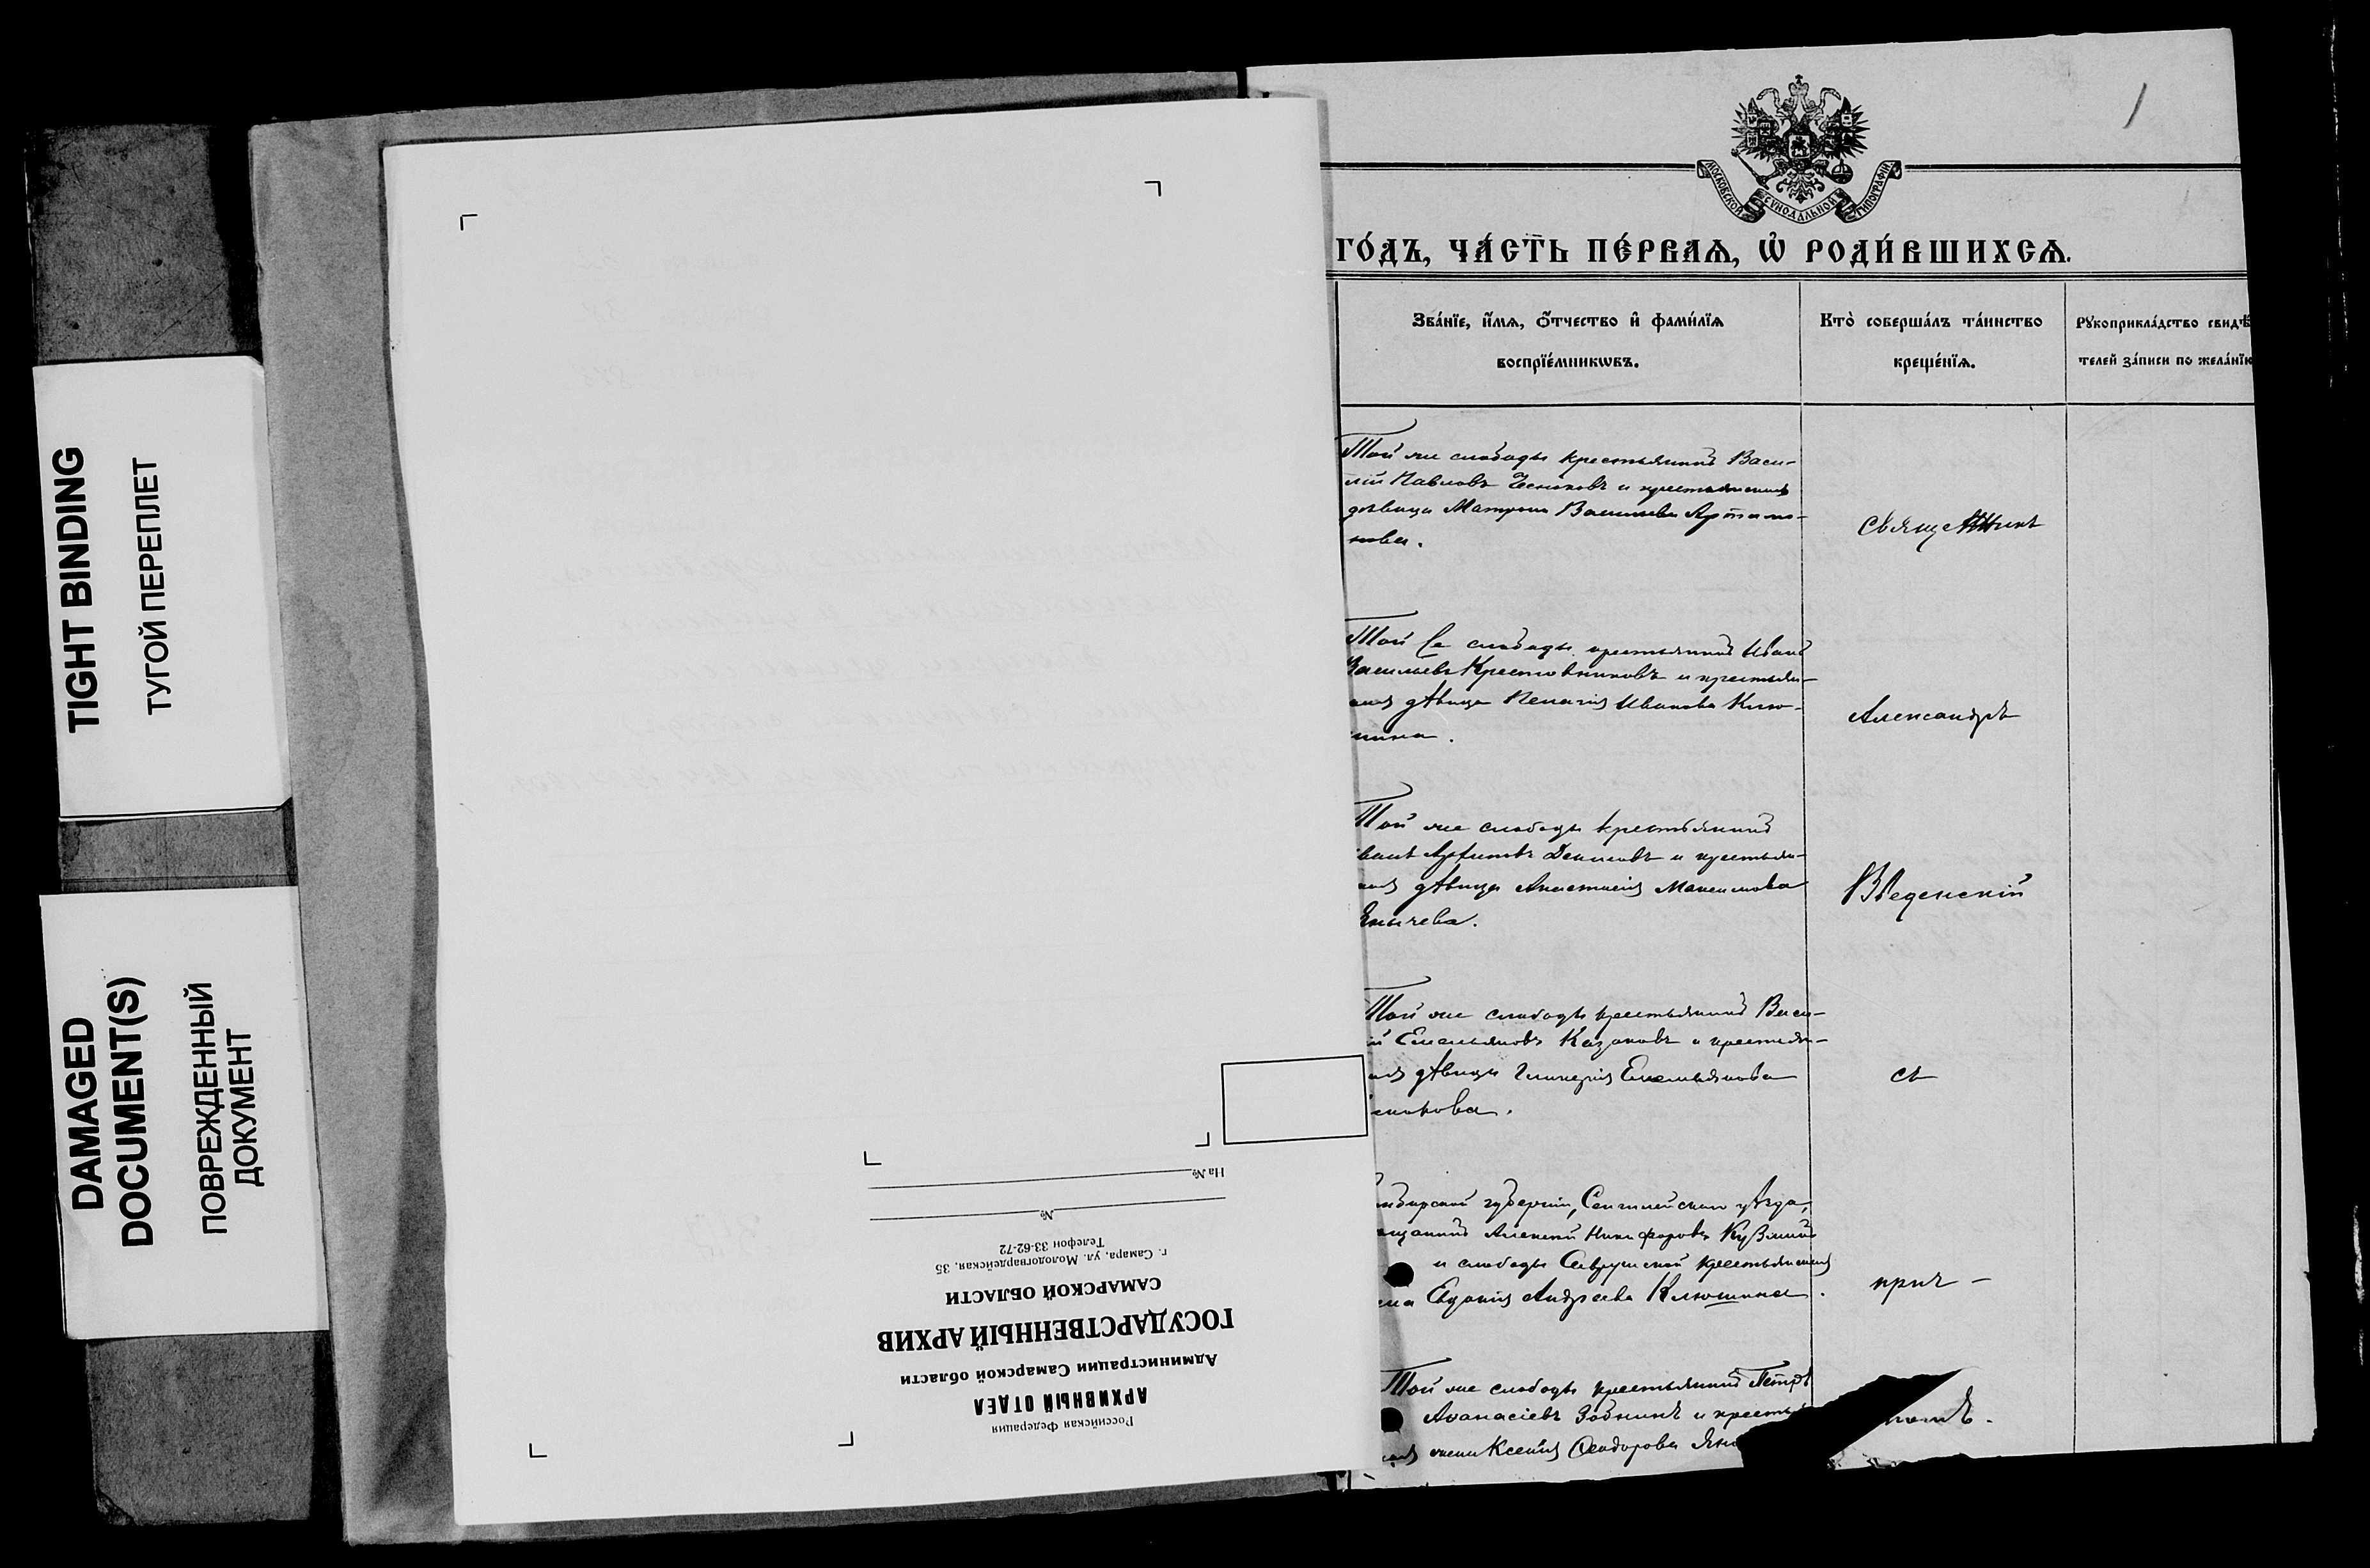 TIGHT BINDING
ТУГОЙ ПЕРЕПЛЕТ
DAMAGED
DOCUMENT(S)
ПОВРЕЖДЕННЫЙ
ДОКУМЕНТ
Российская Федерация
АРХИВНЫЙ ОТДЕЛ
Администрации Самарской области
ГОСУДАРСТВЕННЫЙ АРХИВ
САМАРСКОЙ ОБЛАСТИ
г. Самара, ул. Молодогвардейская, 35
Телефон 33-62-72
№
На №
1
МОСКОВСКОЙ СѴНОДАЛЬНОЙ ТИПОГРАФІИ
ГО́ДЪ, ЧА́СТЬ ПЕ́РВАѦ, Ѽ РОДИ́ВШИХСѦ.
Зва́нїе, и҆́мѧ, ѻ҆́тчество и҆ фами́лїѧ
воспрїе́мникѡвъ.
Кто̀ соверша́лъ та́инство
креще́нїѧ.
Рꙋкоприкла́дство свидѣ́
телей за́писи по жела́нїю
Той же слободы крестьянинъ Васи-
лій Павловъ и крестьянская
дѣвица Матрона Васильева Артамо-
нова.
Той же слободы крестьянинъ Иванъ
Васильевъ Крестовниковъ и крестьян-
дѣвица Пелагія Иванова Клю-
шина.
Той же слободы крестьянинъ
Денисовъ и крестьян-
дѣвица Анастасія Максимова
Той же слободы крестьянинъ Васи-
й Емельяновъ Казаковъ и крестьян-
дѣвица Гликерія Емельянова
губерніи, Сенгилейскаго уѣзда,
Алексей Никифоровъ Кузминъ
и слободы крестьянская
Евдокія Андреева Клюшина.
Той же слободы крестьянинъ Петръ
Аѳанасіевъ Зобнинъ и
жена Ксенія Ѳеодорова
Священникъ
Александръ
Введенскій
съ
прич-
томъ.